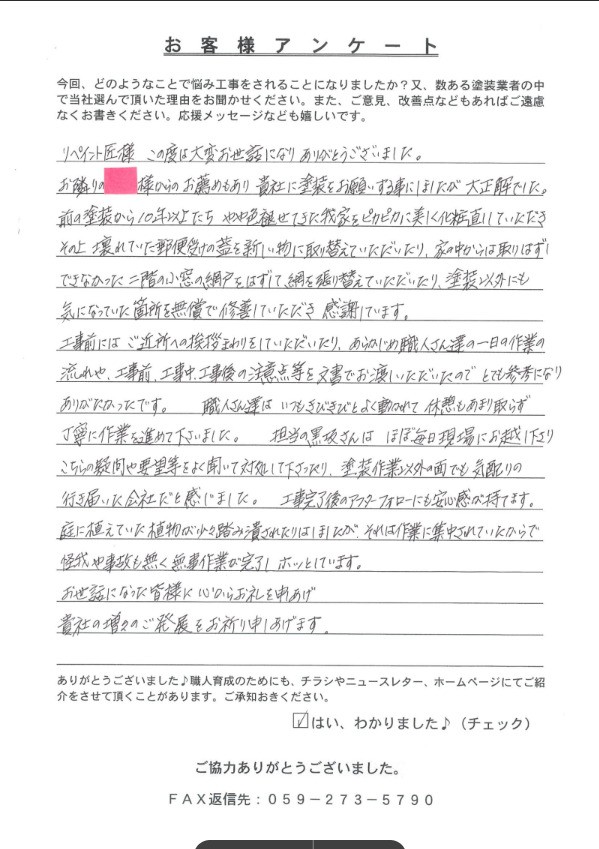 お客様アンケート
今回、どのようなことで悩み工事をされることになりましたか？又、数ある塗装業者の中
で当社選んで頂いた理由をお聞かせください。また、ご意見、改善点などもあればご遠慮
なくお書きください。応援メッセージなども嬉しいです。
リペイント匠様 この度は大変お世話になりありがとうございました。
お隣りの 様からのお薦めもあり 貴社に塗装をお願いする事にしましたが 大正解でした。
前の塗装から10年以上たち やや色褪せてきた我家をピカピカに美しく化粧直ししていただき
その上 壊れていた郵便受けの蓋を新しい物に取り替えていただいたり、家の中からは取りはずし
できなかった 二階の小窓の網戸をはずして網を張り替えていただいたり、塗装以外にも
気になっていた箇所を無償で修善していただき 感謝しています。
工事前には ご近所への挨拶まわりをしていただいたり、あらかじめ職人さん達の一日の作業の
流れや、工事前、工事中、工事後の注意点等を文書でお渡しいただいたので とても参考になり
ありがたかったです。 職人さん達は いつもきびきびとよく動かれて 休憩もあまり取らず
丁寧に作業を進めて下さいました。 担当の黒坂さんは ほぼ毎日現場にお越し下さり
こちらの疑問や要望等をよく聞いて対処して下さったり、塗装作業以外の面でも気配りの
行き届いた会社だと感じました。 工事完了後のアフターフォローにも安心感が持てます。
庭に植えていた植物が少々踏み潰されたりはしましたが、それは作業に集中されていたからで
怪我や事故も無く 無事作業が完了し ホッとしています。
お世話になった皆様に 心からお礼を申あげ
貴社の増々のご発展をお祈り申しあげます。
ありがとうございました♪職人育成のためにも、チラシやニュースレター、ホームページにてご紹
介をさせて頂くことがあります。ご承知おきください。
☑はい、わかりました♪（チェック）
ご協力ありがとうございました。
ＦＡＸ返信先：０５９－２７３－５７９０